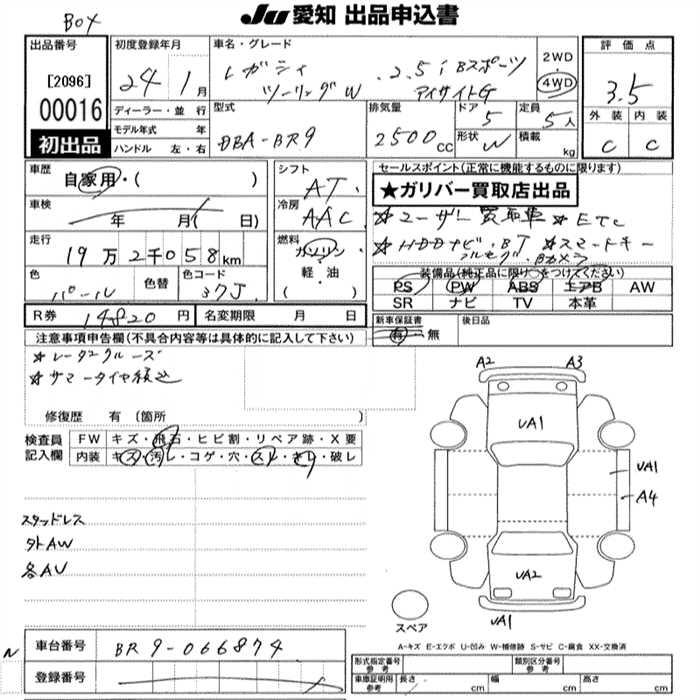 BOX
JU 愛知 出品申込書
出品番号
[2096]
00016
初出品
初度登録年月
24 1月
ディーラー・並 行
モデル年式 年
ハンドル 左・右
車名・グレード
レガシィ 2.5i Bスポーツ
ツーリングW アイサイトG
2WD
4WD
型式
DBA-BR9
排気量
2500cc
ドア
5
形状 W
定員
5人
積載
kg
評価点
3.5
外装 内装
C C
車歴
自家用・( )
車検
年 月( 日)
走行
19万2千058km
色
パール
色替
色コード
37J
シフト
AT
冷房
AAC
燃料
ガソリン
軽・油
( )
セールスポイント(正常に機能するものに限ります)
★ガリバー買取店出品
☆ユーザー買取車 ☆ETC
☆HDDナビ・BT ☆スマートキー
フルセグ・Bカメラ
装備品(純正品に限り○をつけてください)
PS PW ABS エアB AW
SR ナビ TV 本革
R券 14820円
名変期限 月 日
新車保証書
有・無
後日品
注意事項申告欄(不具合内容等は具体的に記入して下さい)
☆レーダークルーズ
☆サマータイヤ積込
修復歴 有 (箇所 )
検査員
記入欄
FW キズ・飛石・ヒビ割・リペア跡・X要
内装 キズ・汚レ・コゲ・穴・スレ・キレ・破レ
スタッドレス
外AW
各AU
A2 A3
UA1
UA1
A4
UA2
UA1
スペア
A-キズ E-エクボ U-凹み W-補修跡 S-サビ C-腐食 XX-交換済
N
車台番号 BR9-066874
登録番号
形式指定番号
参考
類別区分番号
参考
車庫証明用
参考
長さ cm 幅 cm 高さ cm